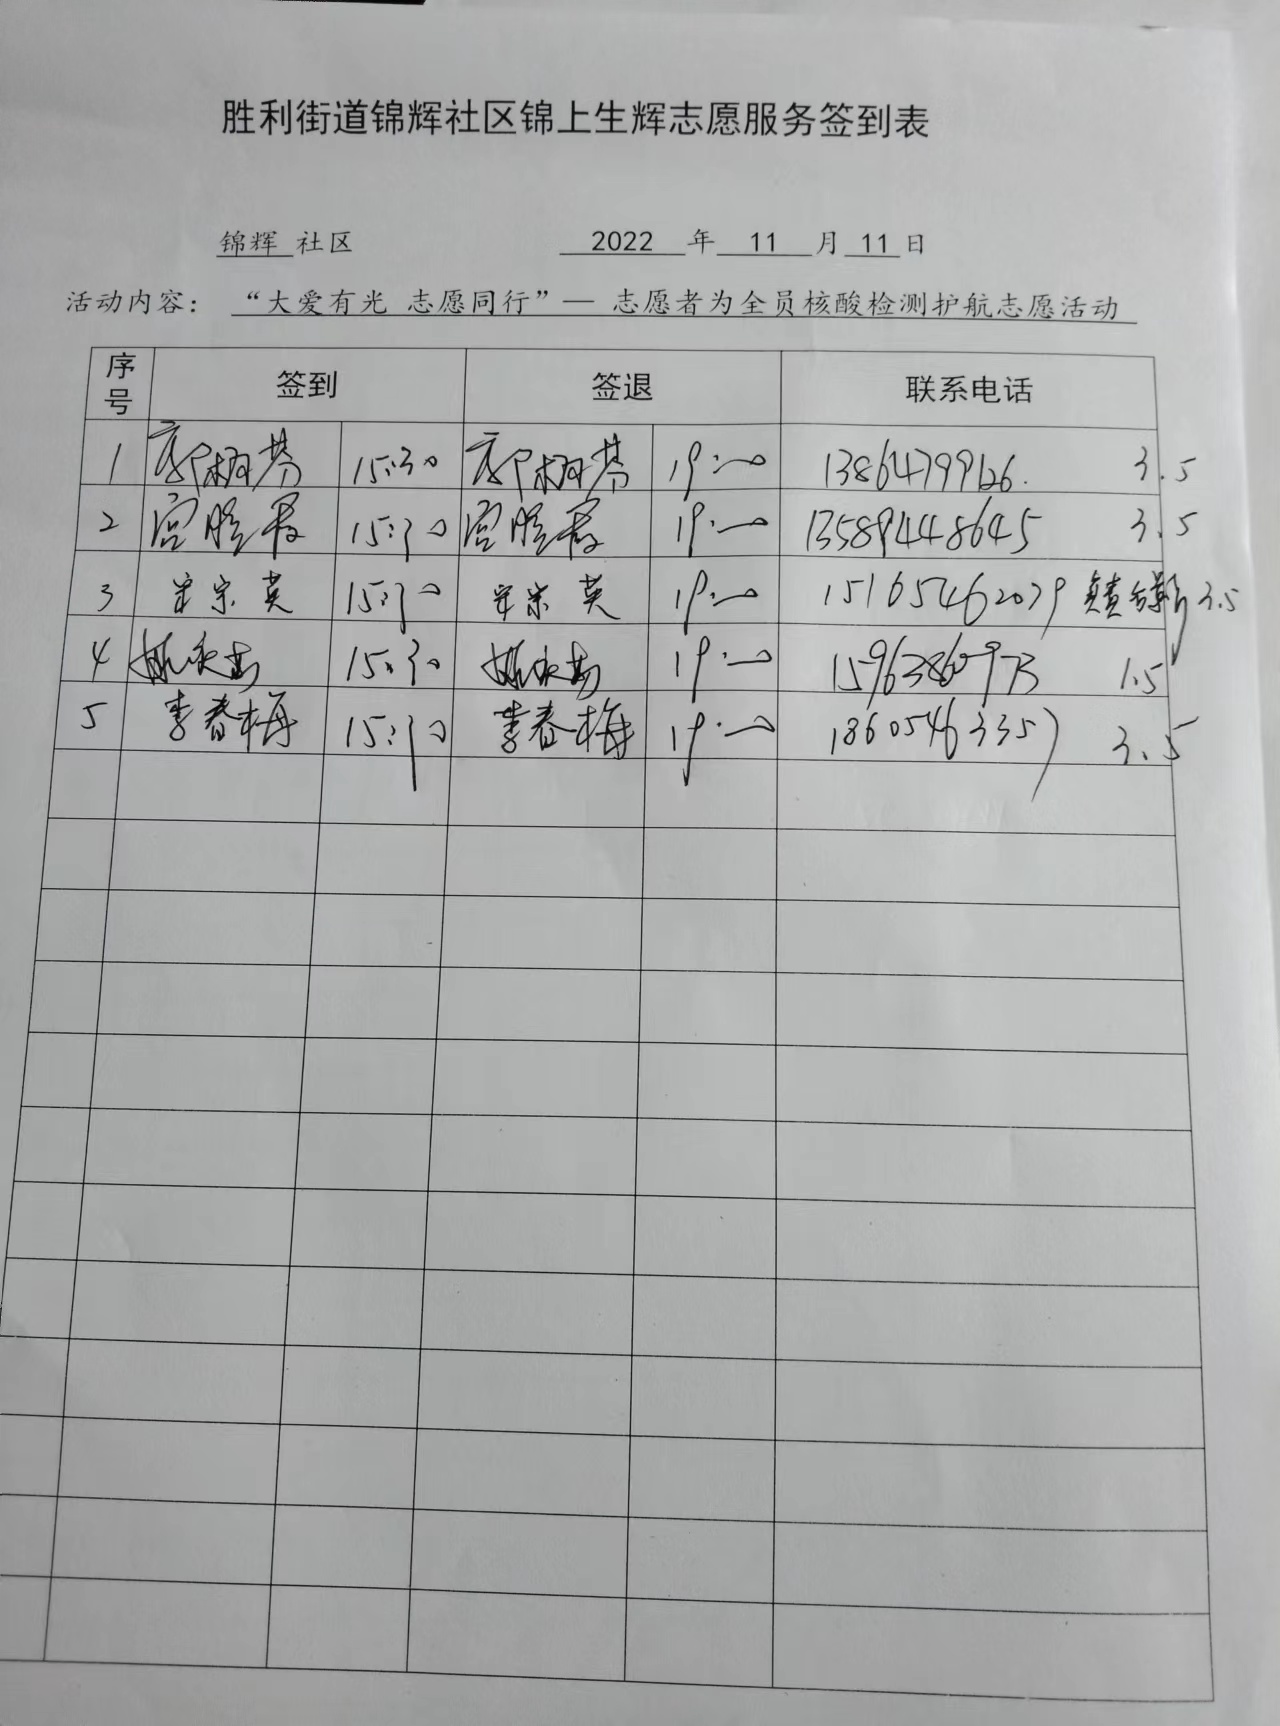 胜利街道锦辉社区锦上生辉志愿服务签到表
锦辉 社区 2022 年 11 月 11 日
活动内容： “大爱有光 志愿同行”— 志愿者为全员核酸检测护航志愿活动
序号 签到 签退 联系电话
1 15:30 19:00 13864799126. 3.5
2 15:30 19:00 13589448645 3.5
3 宋宗英 15:30 19:00 宋宗英 15165462079 3.5
4 15:30 19:00 1.5
5 李春梅 15:30 李春梅 19:00 18605463357 3.5